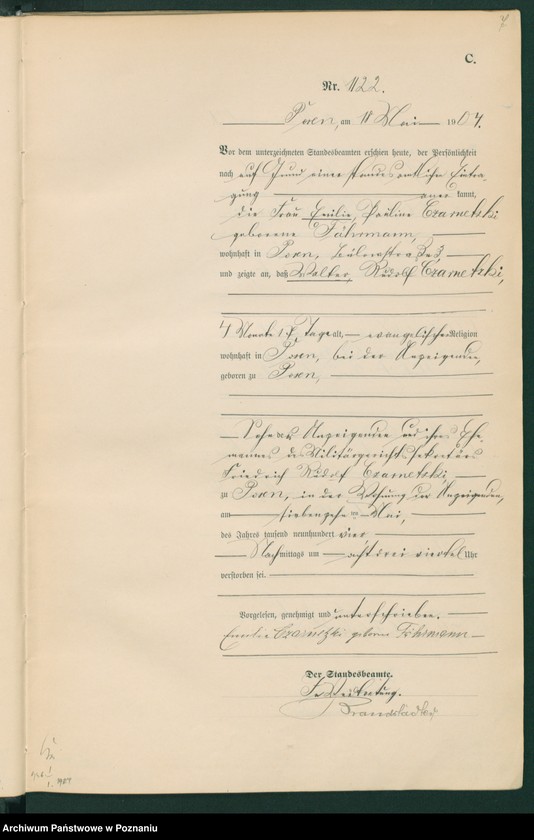 7
C.
Nr. 1122.
Posen, am Mai 1904.
Vor dem unterzeichneten Standesbeamten erschien heute, der Persönlichkeit
nach auf Grund einer standesamtlichen Eintra-
gung anerkannt,
die Frau Emilie Pauline Czarnetzki
geborene Führmann,
wohnhaft in Posen, Bülowstraße
und zeigte an, daß Walter Rudolf Czarnetzki,
4 Monate Tage alt, evangelischer Religion
wohnhaft in Posen, bei der Anzeigenden,
geboren zu Posen,
Sohn der Anzeigenden und ihres Ehe-
mannes des Militärgerichtssekretärs
Friedrich Rudolf Czarnetzki,
zu Posen, in der Wohnung der Anzeigenden,
am siebenzehnten Mai,
des Jahres tausend neunhundert vier
Nachmittags um acht drei viertel Uhr
verstorben sei.
Vorgelesen, genehmigt und unterschrieben.
Emilie Czarnetzki geborene Führmann
Der Standesbeamte.
In Vertretung.
Brandstädter
Archiwum Państwowe w Poznaniu